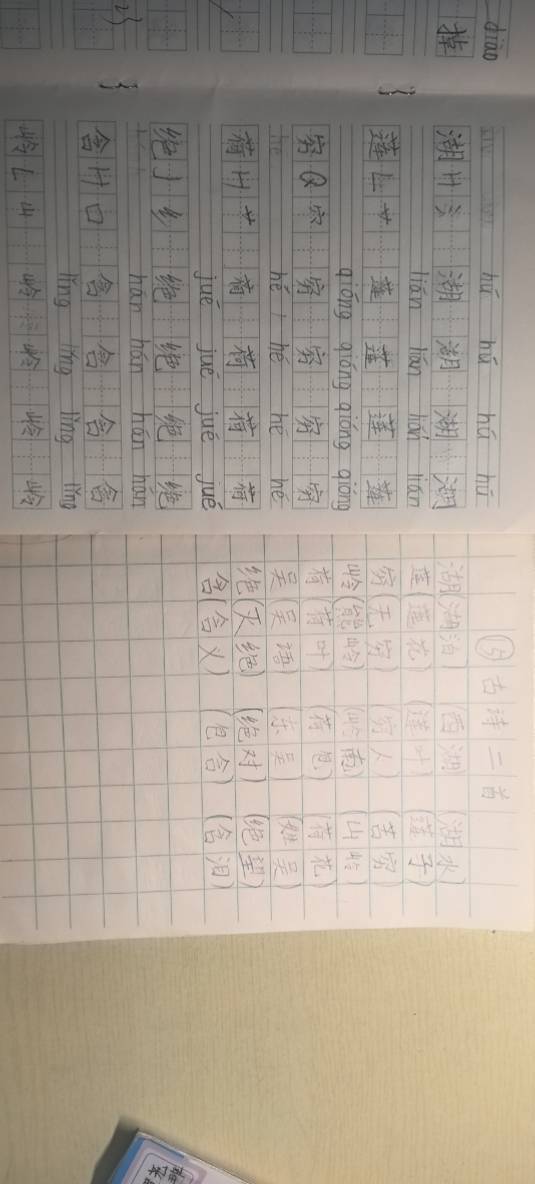 diào
掉
hú hú hú hú
湖 H 氵 湖 湖 湖 湖
lián lián lián lián
莲 L 艹 莲 莲 莲 莲
qióng qióng qióng qióng
穷 Q 穴 穷 穷 穷 穷
hé hé hé hé
荷 H 艹 荷 荷 荷 荷
jué jué jué jué
绝 J 纟 绝 绝 绝 绝
hán hán hán hán
含 H 口 含 含 含 含
lǐng lǐng lǐng lǐng
岭 L 山 岭 岭 岭 岭
⑮ 古诗二首
湖(湖泊) (西湖) (湖水)
莲(莲花) (莲叶) (莲子)
穷(无穷) (穷人) (苦穷)
岭(岭) (岭南) (山岭)
荷(荷叶) (荷包) (荷花)
吴(吴语) (东吴) (姓吴)
绝(灭绝) (绝对) (绝望)
含(含义) (包含) (含泪)